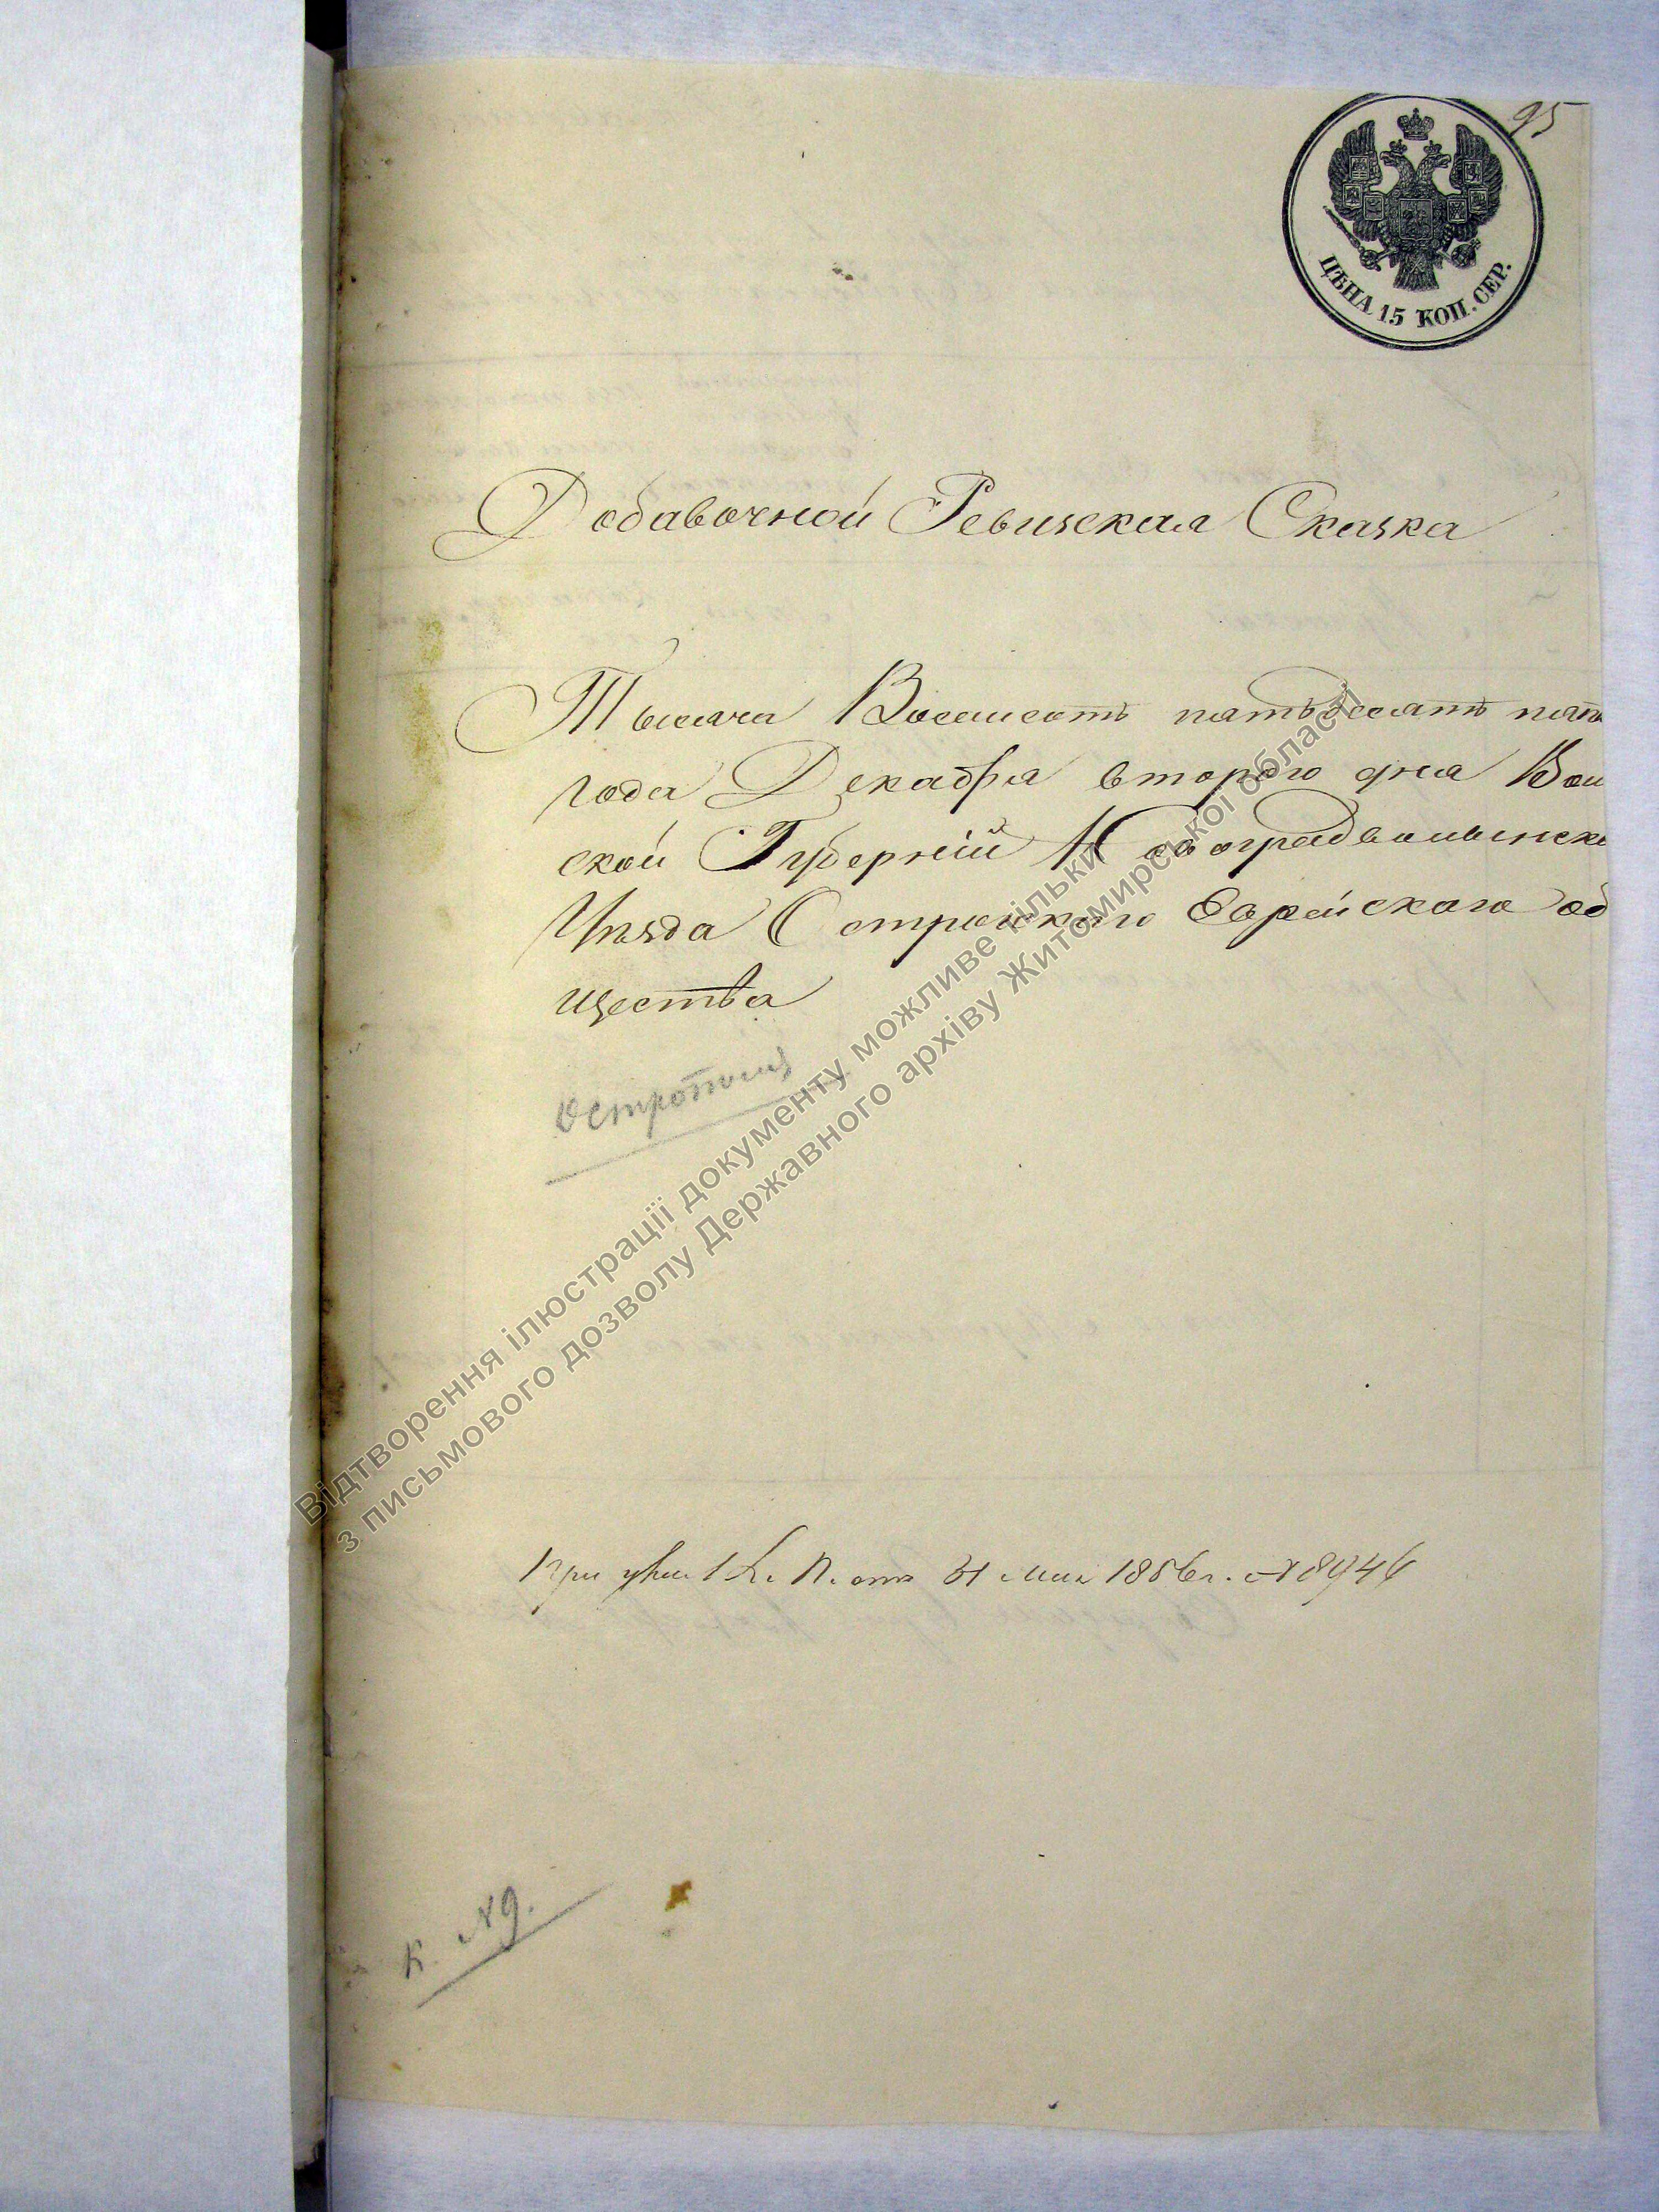 95
ЦѢНА 15 КОП. СЕР.
Добавочной Ревизская Сказка
Тысяча Восемсотъ пятьдесятъ пят
года Декабря второго дня Вол
ской Губерніи Новоградволынска
Уѣзда Остропского Еврейского об
щества
Острополь
При от 31 Мая 1856 г. № 8946
К. № 9.
Відтворення ілюстрації документу можливе тільки
з письмового дозволу Державного архіву Житомирської області